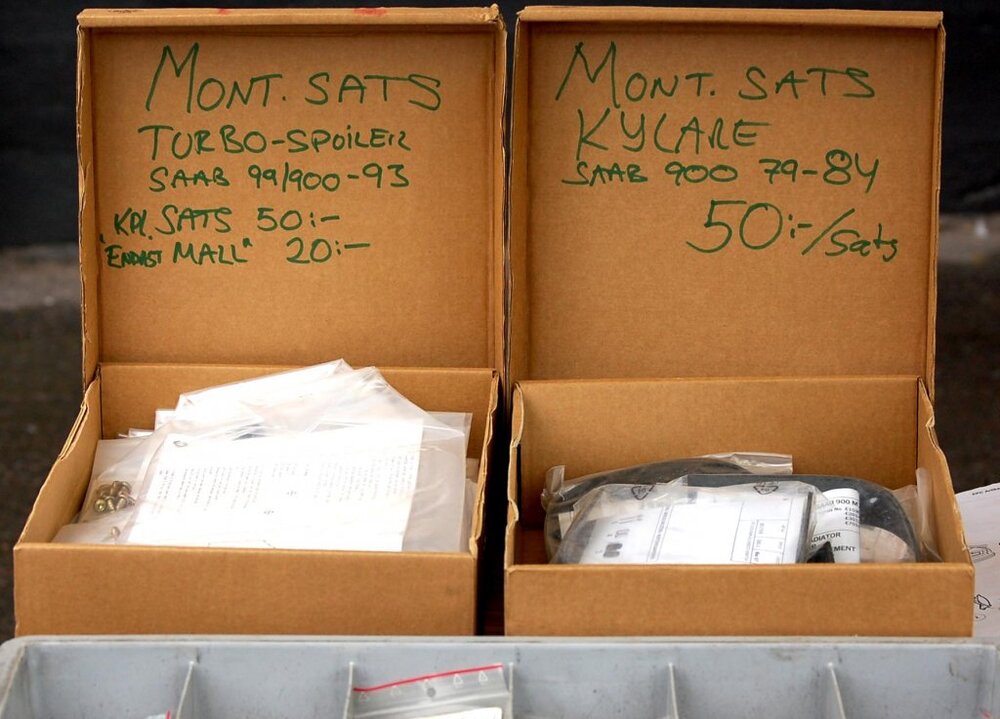 MONT. SATS
TURBO-SPOILER
SAAB 99/900-93
KPL. SATS 50:-
"ENDAST MALL" 20:-
MONT. SATS
KYLARE
SAAB 900 79-84
50:-/Sats
SAAB 900 M
RADIATOR
MENT